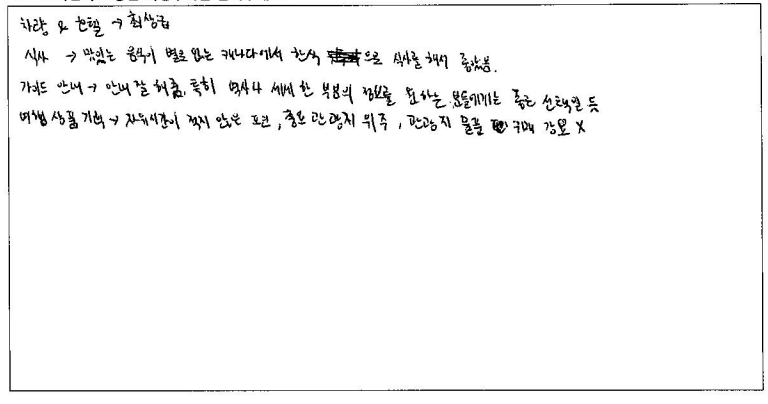 차량 & 호텔 → 최상급
식사 → 맛있는 음식이 별로 없는 캐나다에서 한식 으로 식사를 해서 좋았음.
가이드 안내 → 안내 잘 해줌, 특히 역사나 세세한 부분의 정보를 원하는 분들에게는 좋은 선택일 듯
여행 상품 기획 → 자유시간이 적지 않은 표현, 중요 관광지 위주, 관광지 물품 구매 강요 X